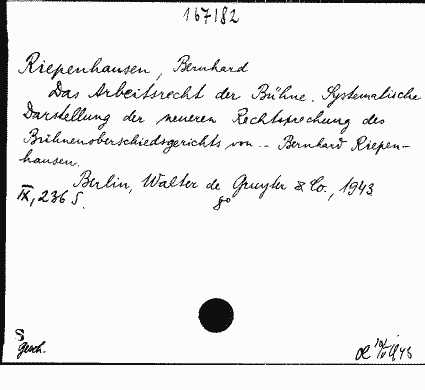 167182
Riepenhausen, Bernhard
Das Arbeitsrecht der Bühne. Systematische
Darstellung der neueren Rechtsprechung des
Bühnenoberschiedsgerichts von .. Bernhard Riepen-
hausen.
Berlin, Walter de Gruyter & Co., 1943
IX, 236 S. 8°
S
gesch.